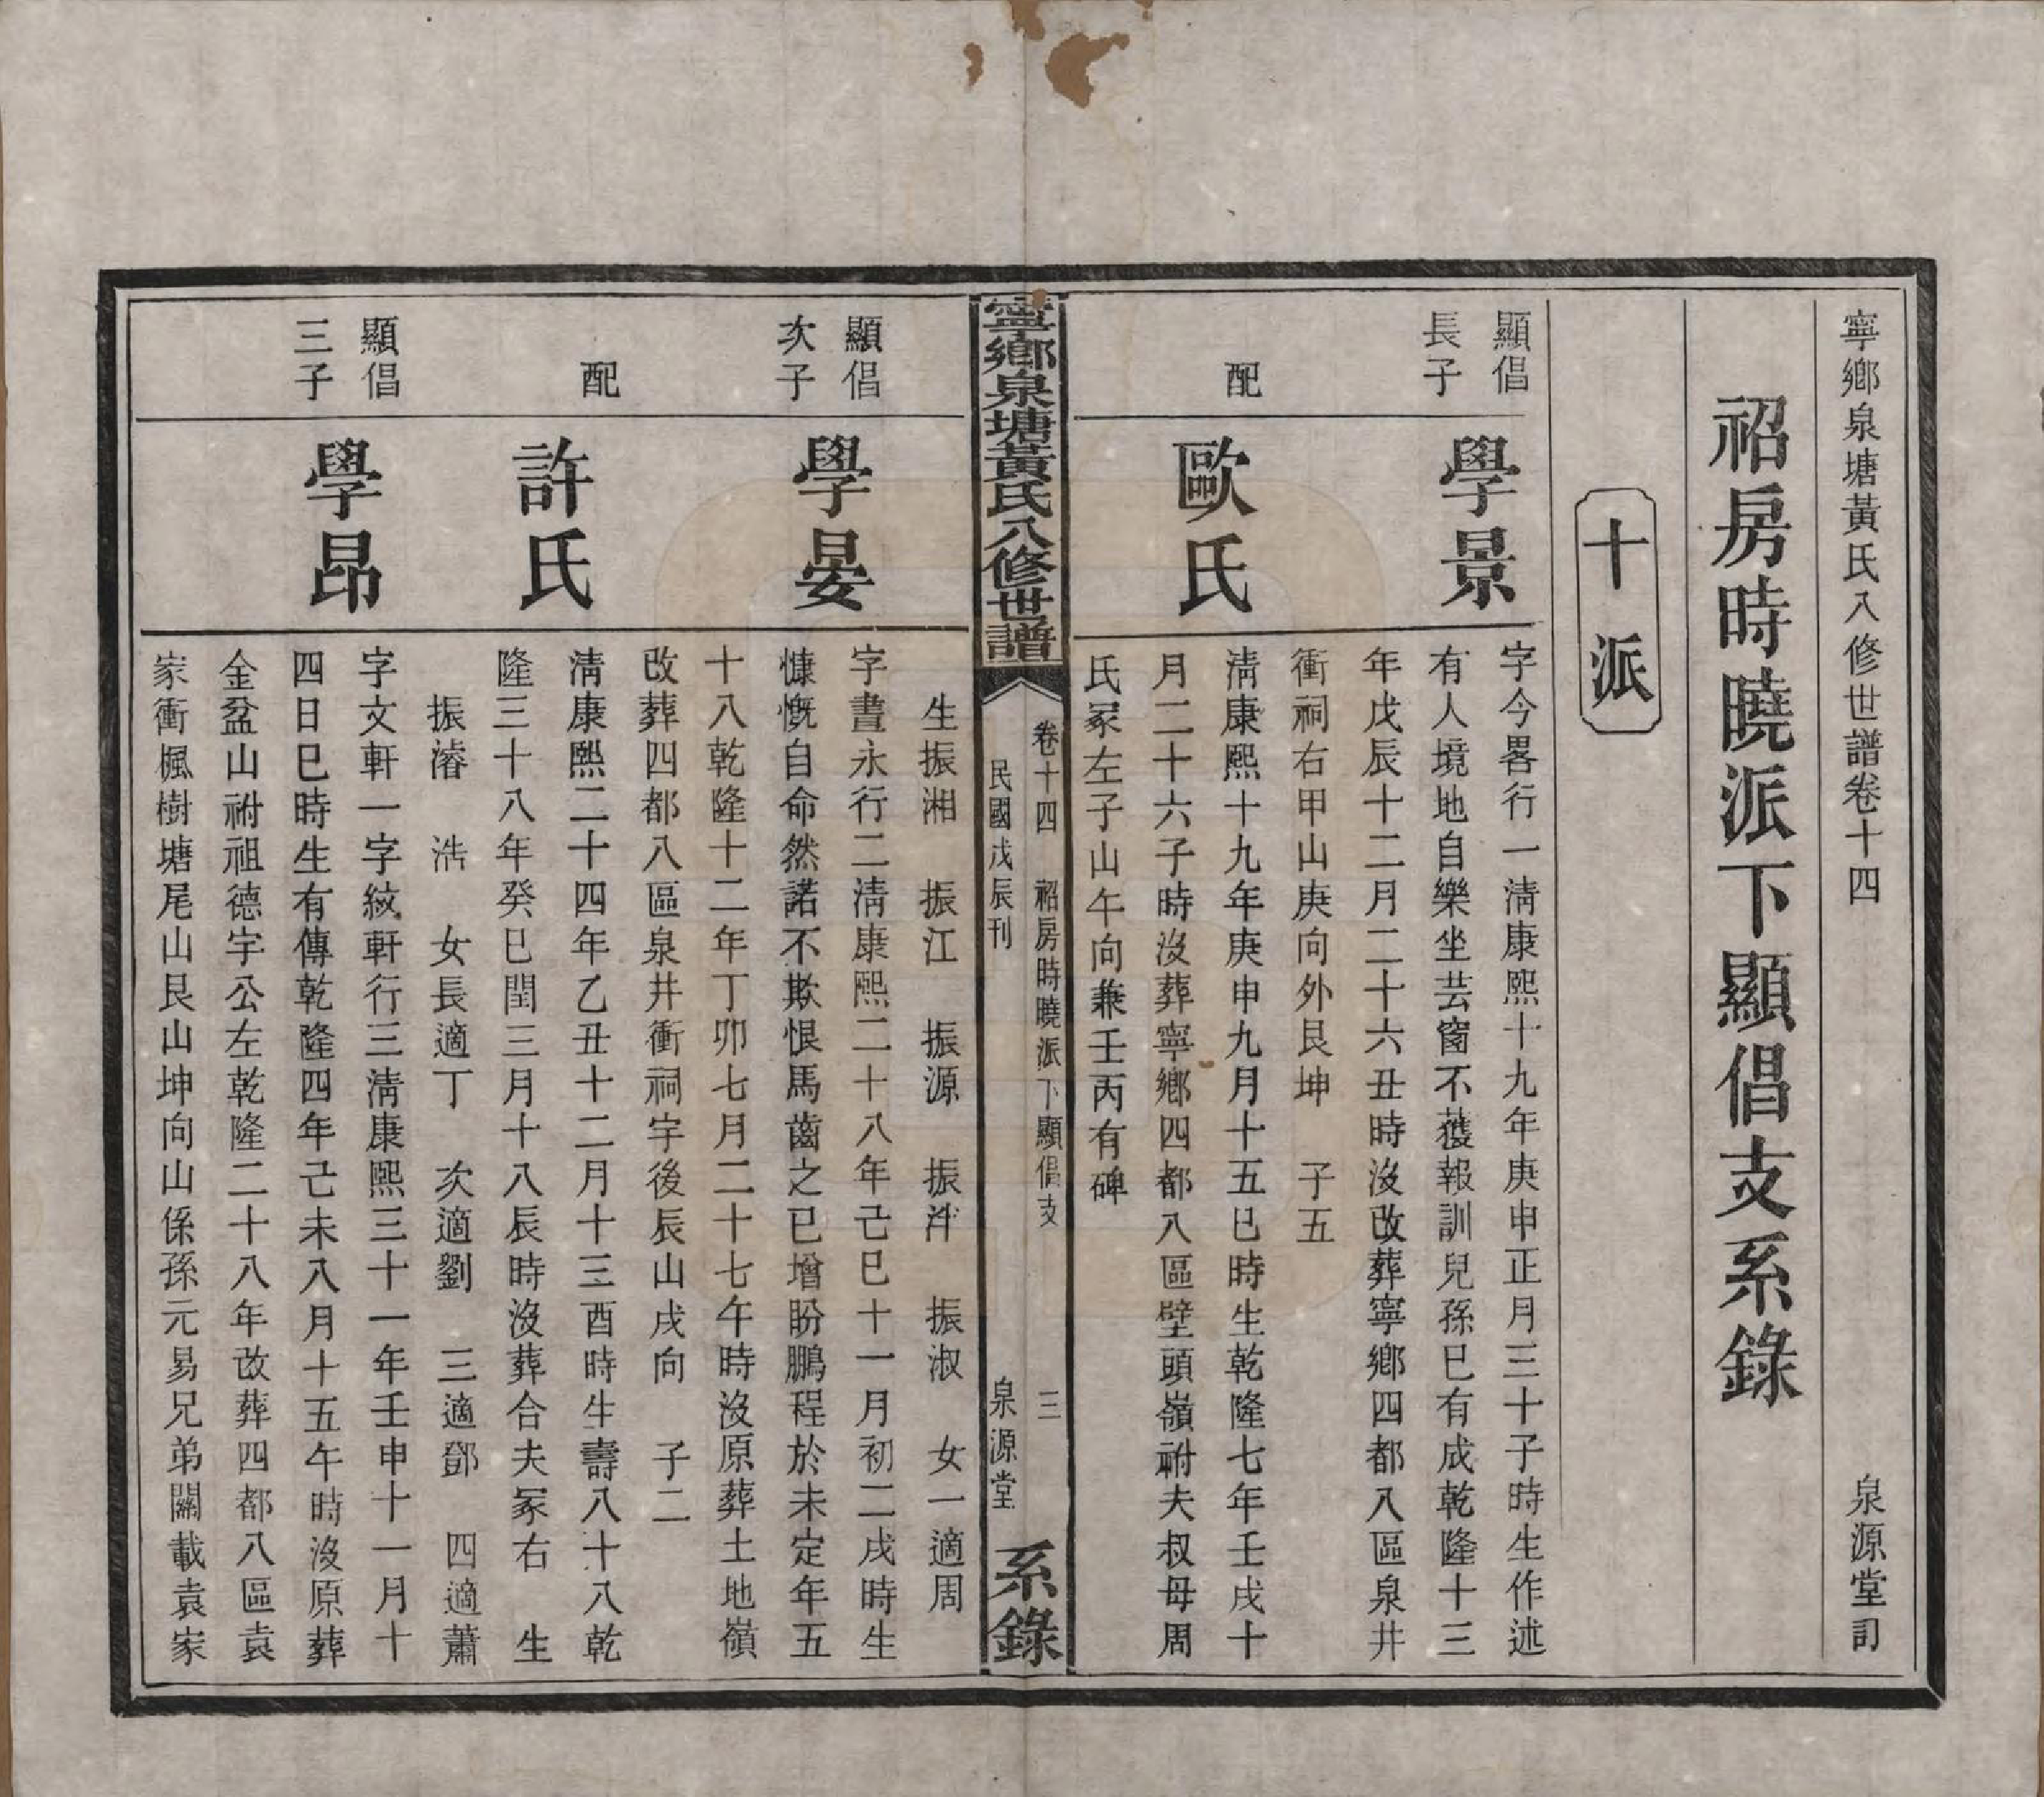 寧鄉泉塘黃氏八修世譜卷十四
泉源堂訂
祒房時曉派下顯倡支系錄
十派
顯倡
長子
學景
字今畧行一淸康熙十九年庚申正月三十子時生作述
有人境地自樂坐芸窗不獲報訓兒孫已有成乾隆十三
年戊辰十二月二十六丑時沒改葬寧鄉四都八區泉井
衝祠右甲山庚向外艮坤 子五
配
歐氏
淸康熙十九年庚申九月十五巳時生乾隆七年壬戌十
月二十六子時沒葬寧鄉四都八區壁頭嶺祔夫叔母周
氏冡左子山午向兼壬丙有碑
寧鄉泉塘黃氏八修世譜
卷十四 祒房時曉派下顯倡支 三
民國戊辰刊 泉源堂
系錄
生振湘 振江 振源 振泮 振淑 女一適周
顯倡
次子
學晏
字晝永行二淸康熙二十八年己巳十一月初二戌時生
慷慨自命然諾不欺恨馬齒之已增盼鵬程於未定年五
十八乾隆十二年丁卯七月二十七午時沒原葬土地嶺
改葬四都八區泉井衝祠宇後辰山戌向 子二
配
許氏
淸康熙二十四年乙丑十二月十三酉時生壽八十八乾
隆三十八年癸巳閏三月十八辰時沒葬合夫冡右 生
振濬 浩 女長適丁 次適劉 三適鄧 四適蕭
顯倡
三子
學昂
字文軒一字紋軒行三淸康熙三十一年壬申十一月十
四日巳時生有傳乾隆四年己未八月十五午時沒原葬
金盆山祔祖德宇公左乾隆二十八年改葬四都八區袁
家衝楓樹塘尾山艮山坤向山係孫元易兄弟關載袁家